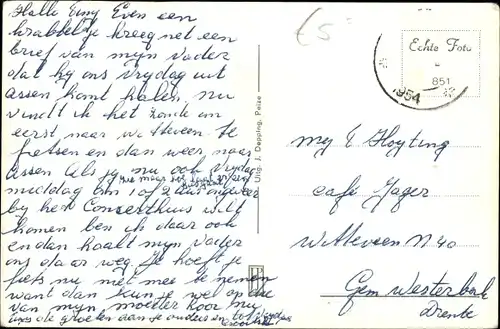 Hallo Eny Even een
krabbeltje kreeg net een
brief van mijn Vader
dat hij ons Vrijdag uit
assen komt halen. nu
vindt ik het zonde om
eerst naar witteveen te
fietsen en dan weer naar
assen als je nu ook Vrijdag
middag om 1 of 2 uur ongeveer
bij het Concerthuis wilt
komen ben ik daar ook
en dan haalt mijn Vader
ons daar weg. Je hoeft je
fiets nu niet mee te nemen
want dan kun je wel op die
van mijn moeder hoor nu
de groeten aan je ouders en tot Vrijdag
Uitg. J. Depping, Peize
£5
Echte Foto
851
1954
mej E Hoyting
café Jager
Witteveen N 40
Gem Westerbork
Drente